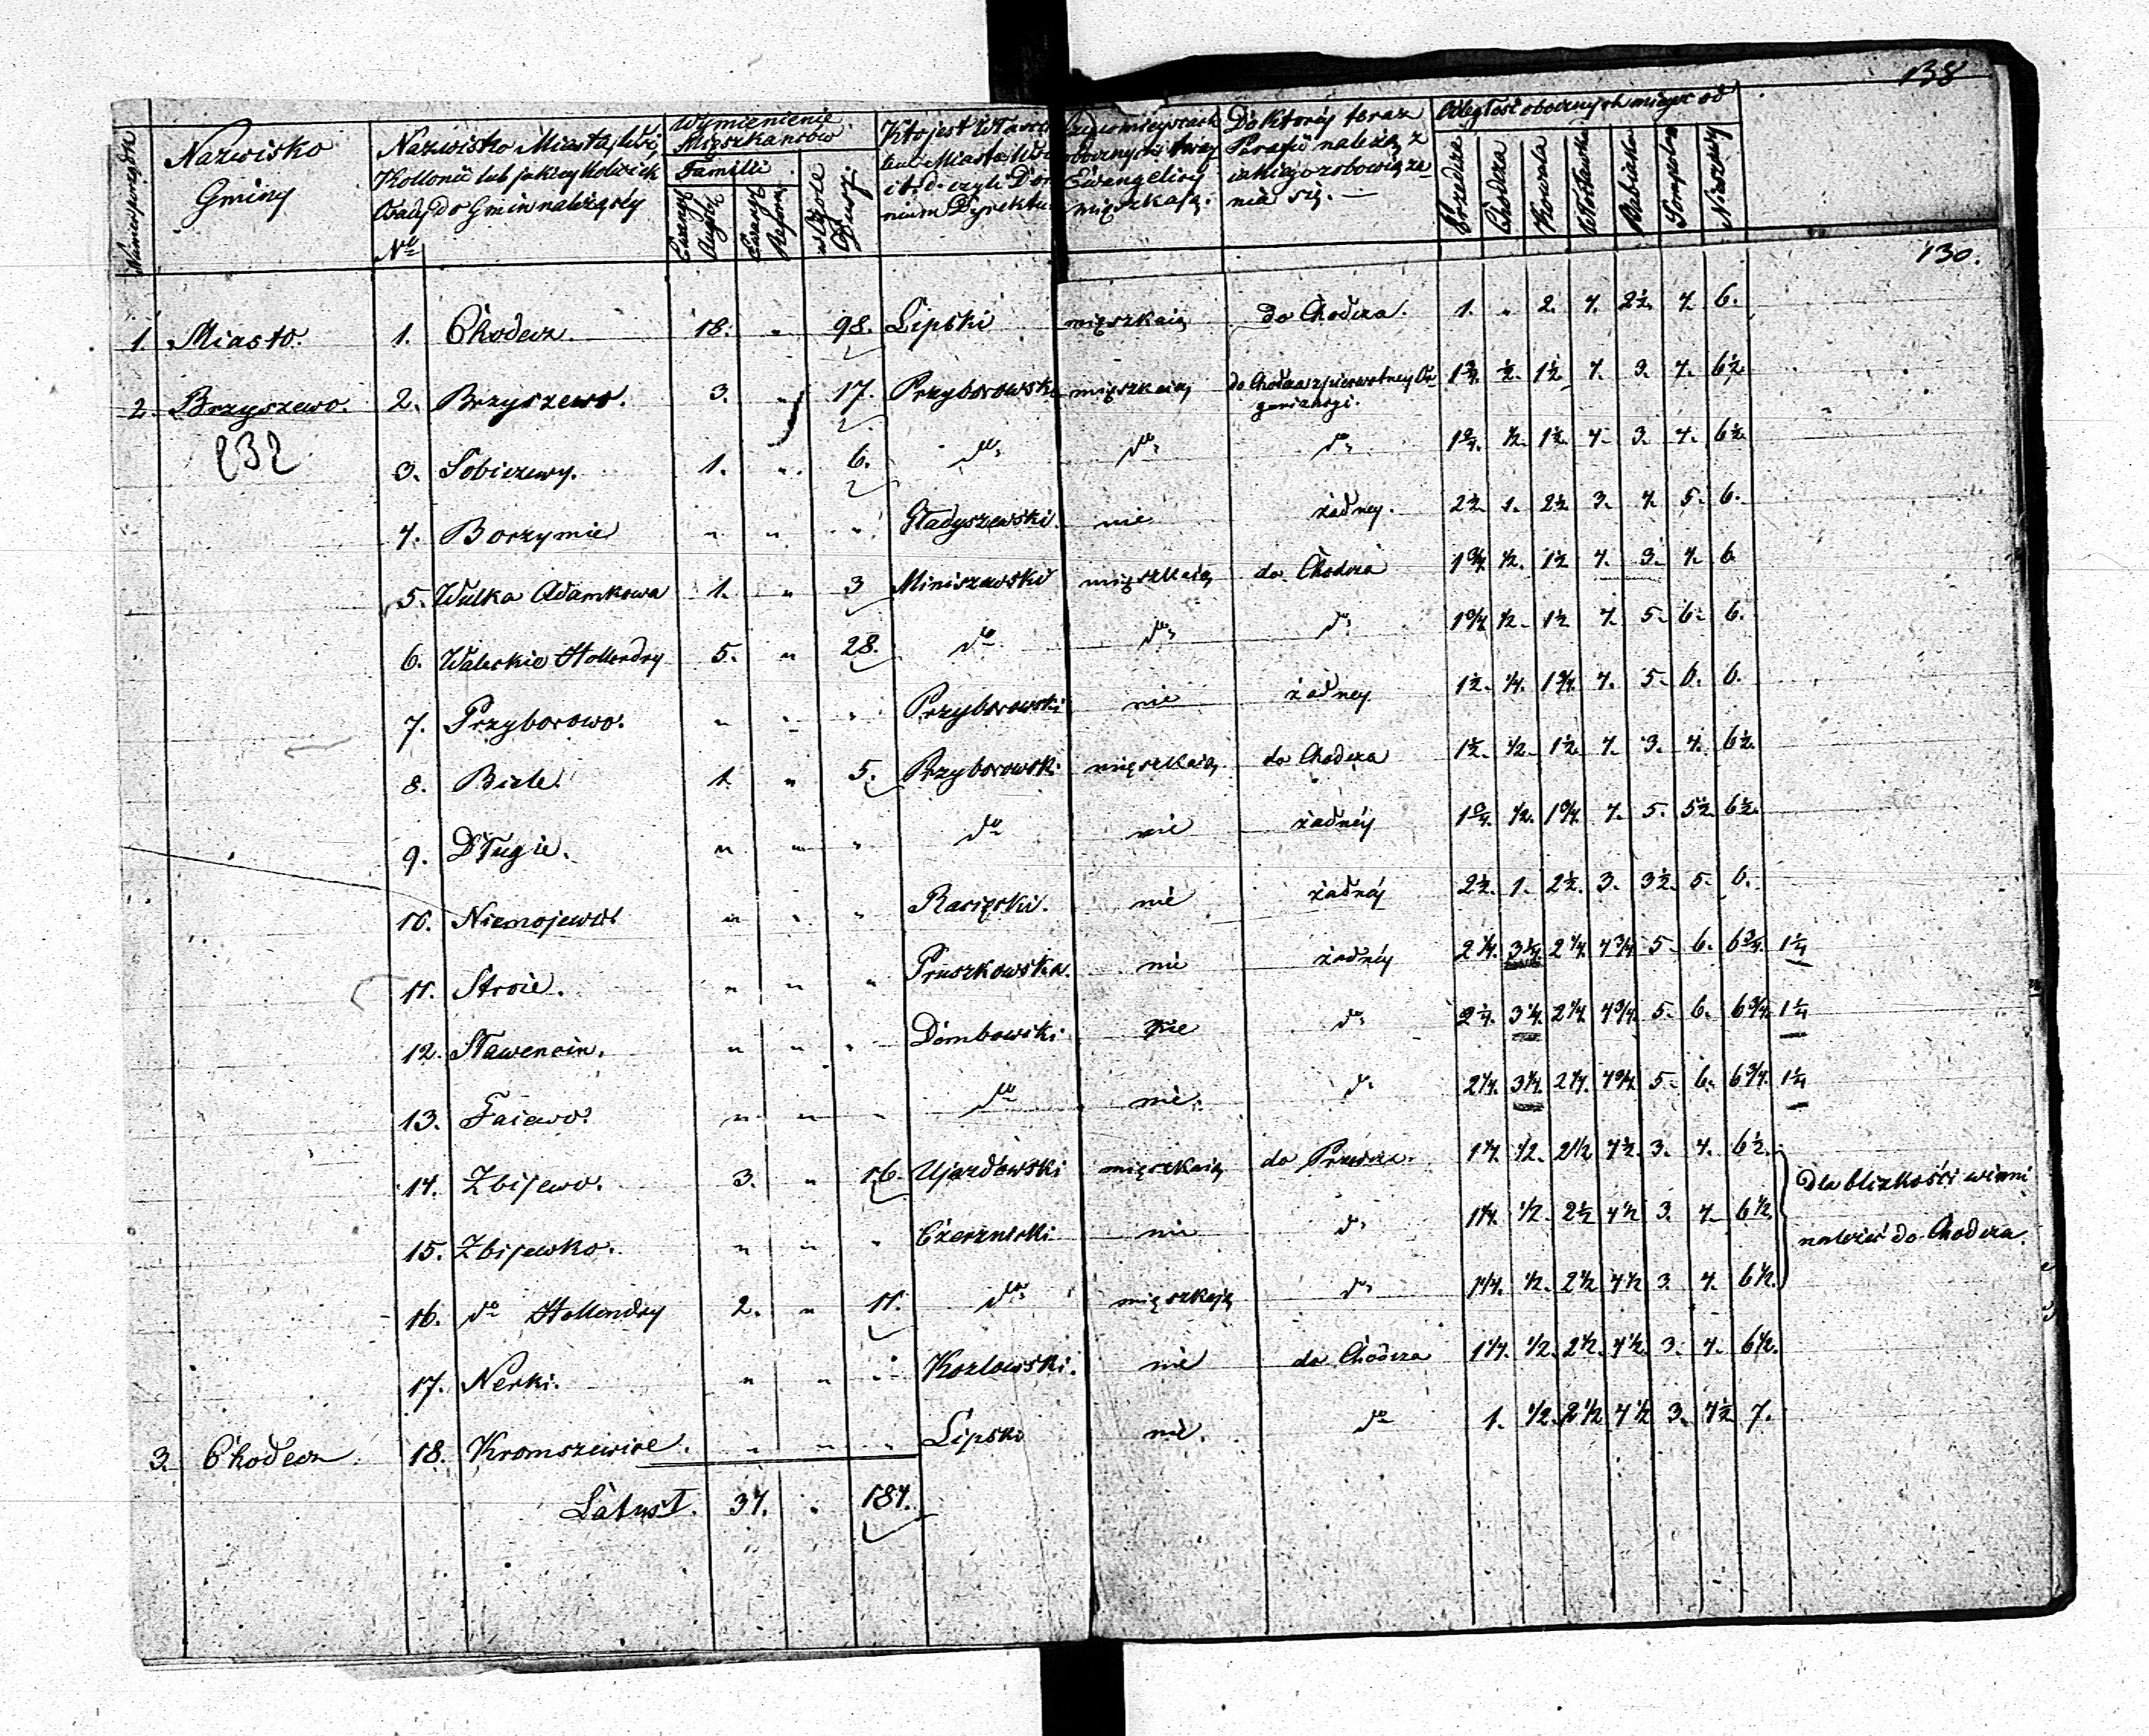 138
130.
Numer porządku
Nazwisko
Gminy
Nazwisko Miasta, Wsi,
Kollonii lub jakiey kolwiek
Osady do Gmin należący
No
Wymienienie
Mięszkancow
Familii
Ewangel Augsb
Ewangel Reform
w Ogole Dusz.
Kto jest
Miasta
i t. d. czyli
Dyrektu
obocznych
Ewangelicy
mięszkają.
Do Ktoréy teraz
Parafii należą z
iakiego zobowiąza
nia się.
Odległość obocznych mieysc od
Przedcza
Chodcza
Kowala
Włocławka
Babiaka
Sompolna
Nieszawy
1. Miasto. 1. Chodecz. 18. " 98. Lipski mięszkaią do Chodcza. 1. " 2. 4. 2½ 4. 6.
2. Brzyszewo. 2. Brzyszewo. 3. " 17. Przyborowski mięszkaią do Chodcza z pierwotney Or-
ganizacyi. 1¾. ½. 1½ 4. 3. 4. 6½
232
3. Sobiczewy. 1. " 6. do do do 1¾. ½. 1½. 4. 3. 4. 6½.
4. Borzymie " " " Gładyszewski. nie żadney. 2½. 1. 2½ 3. 4. 5. 6.
5. Wulka Adamkowa 1. " 3 Miniszewski mięszkaią do Chodcza 1¾ ½. 1½ 4. 3. 4. 6
6. Waleckie Hollendry 5. " 28. do do do 1¾ ½. 1½ 4. 5. 6. 6.
7. Przyborowo. " " " Przyborowski nie żadney 1½. ¼. 1¾. 4. 5. 6. 6.
8. Biele. 1. " 5. Przyborowski mięszkaią do Chodcza 1½. ½. 1½. 4. 3. 4. 6½.
9. Długie. " " " do nie żadnéy 1¾. ½. 1¾. 4. 5. 5½. 6½.
10. Niemojewo " " " Racięcki. nie żadnéy 2½. 1. 2½. 3. 3½. 5. 6.
11. Stroie. " " " Pruszkowska. nie żadnéy 2¼. 3¼. 2¼. 4¾ 5. 6. 6¾. 1¼
12. Sławencin. " " " Dombowski. nie do 2¼. 3¼. 2¼. 4¾. 5. 6. 6¾. 1¼
13. Faiewo. " " " do nie. do 2¼. 3¼. 2¼. 4¾. 5. 6. 6¾. 1¼
14. Zbijewo. 3. " 16. Ujazdowski mięszkaią do Przedcza. 1¼. ½. 2½ 4½. 3. 4. 6½.
Dla blizkości winni
15. Zbijewko. " " " Czerznicki nie do 1¼. ½. 2½ 4½ 3. 4. 6½.
należeć do Chodcza.
16. do Hollendry 2. " 11. do mięszkają do 1¼. ½. 2½ 4½ 3. 4. 6½.
17. Nerki. " " " Kozlowski. nie do Chodcza 1¼. ½. 2½. 4½. 3. 4. 6½.
3. Chodecz. 18. Kromszewice. " " " Lipski nie. do 1. ½. 2½ 4½ 3. 4½ 7.
Latus I. 34. " 184.